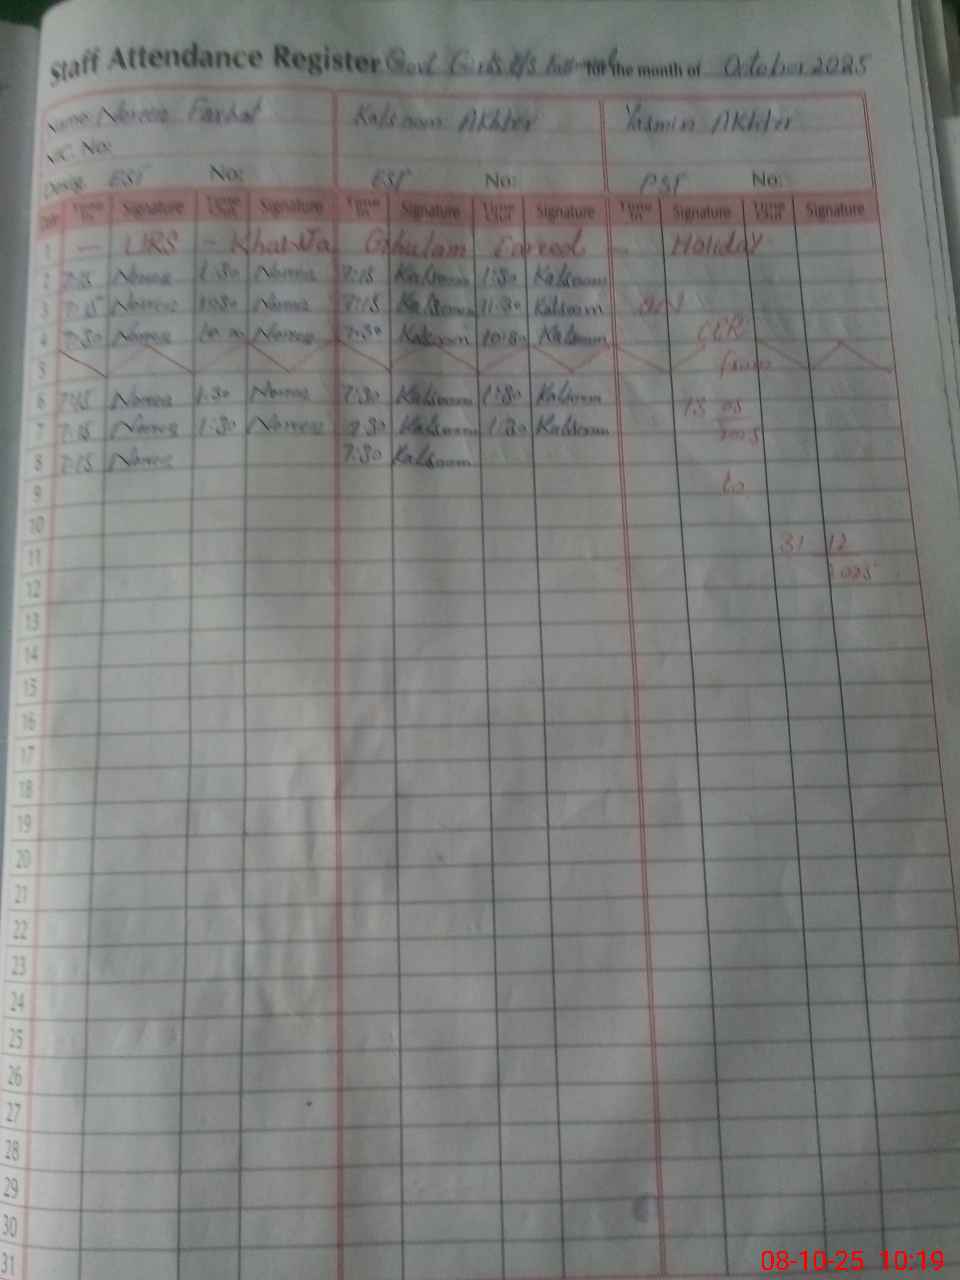 Staff Attendance Register Govt Girls for the month of October 2025
Name: Noreen Farhat Kalsoom Akhter Yasmin Akhter
NIC. No:
Desig. EST No: EST No: PST No:
Date Time In Signature Time Out Signature Time In Signature Time Out Signature Time In Signature Time Out Signature
1 — URS - Khawaja Ghulam Fareed — Holiday
2 7:15 Noreen 1:30 Noreen 7:15 Kalsoom 1:30 Kalsoom
3 7:15 Noreen Noreen 7:15 Kalsoom 11:30 Kalsoom
4 7:30 Noreen Noreen 7:30 Kalsoom 10:30 Kalsoom
5 from
6 7:15 Noreen 1:30 Noreen 7:30 Kalsoom 1:30 Kalsoom
7 7:15 Noreen 1:30 Noreen 7:30 Kalsoom 1:30 Kalsoom
8 7:15 Noreen 7:30 Kalsoom
9 to
10
11 31 12
12 2025
13
14
15
16
17
18
19
20
21
22
23
24
25
26
27
28
29
30
31
08-10-25 10:19